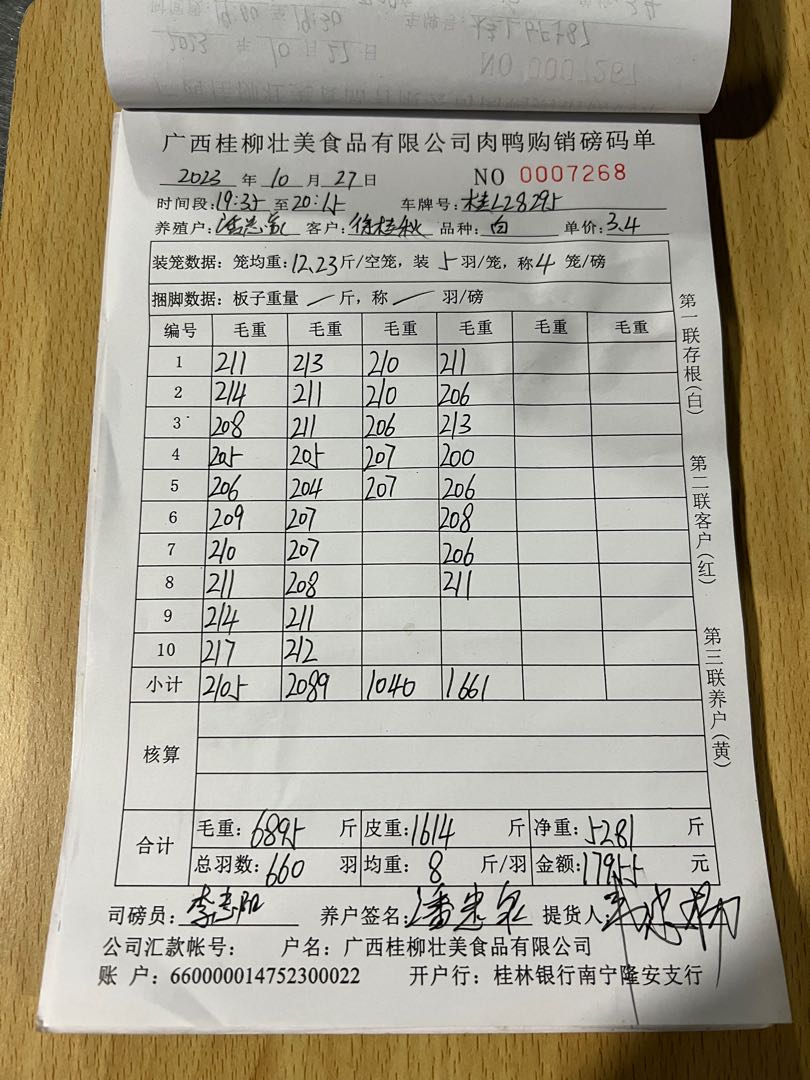 时间段: 19:00 至 19:30 车牌号:
2023 年 10 月 27 日 NO 0007267
广西桂柳壮美食品有限公司肉鸭购销磅码单
2023 年 10 月 27 日 NO 0007268
时间段:19:35 至 20:15 车牌号:桂L28295
养殖户: 客户:徐桂秋 品种:白 单价:3.4
装笼数据: 笼均重:12.23斤/空笼, 装 5 羽/笼, 称 4 笼/磅
捆脚数据: 板子重量 / 斤, 称 / 羽/磅
编号 毛重 毛重 毛重 毛重 毛重 毛重
1 211 213 210 211
2 214 211 210 206
3 208 211 206 213
4 205 205 207 200
5 206 204 207 206
6 209 207 208
7 210 207 206
8 211 208 211
9 214 211
10 217 212
小计 2105 2089 1040 1661
核算
合计 毛重: 6895 斤 皮重: 1614 斤 净重: 5281 斤
总羽数: 660 羽 均重: 8 斤/羽 金额: 17955 元
司磅员: 养户签名: 提货人:
公司汇款帐号: 户名: 广西桂柳壮美食品有限公司
账 户: 660000014752300022 开户行: 桂林银行南宁隆安支行
第一联存根(白) 第二联客户(红) 第三联养户(黄)